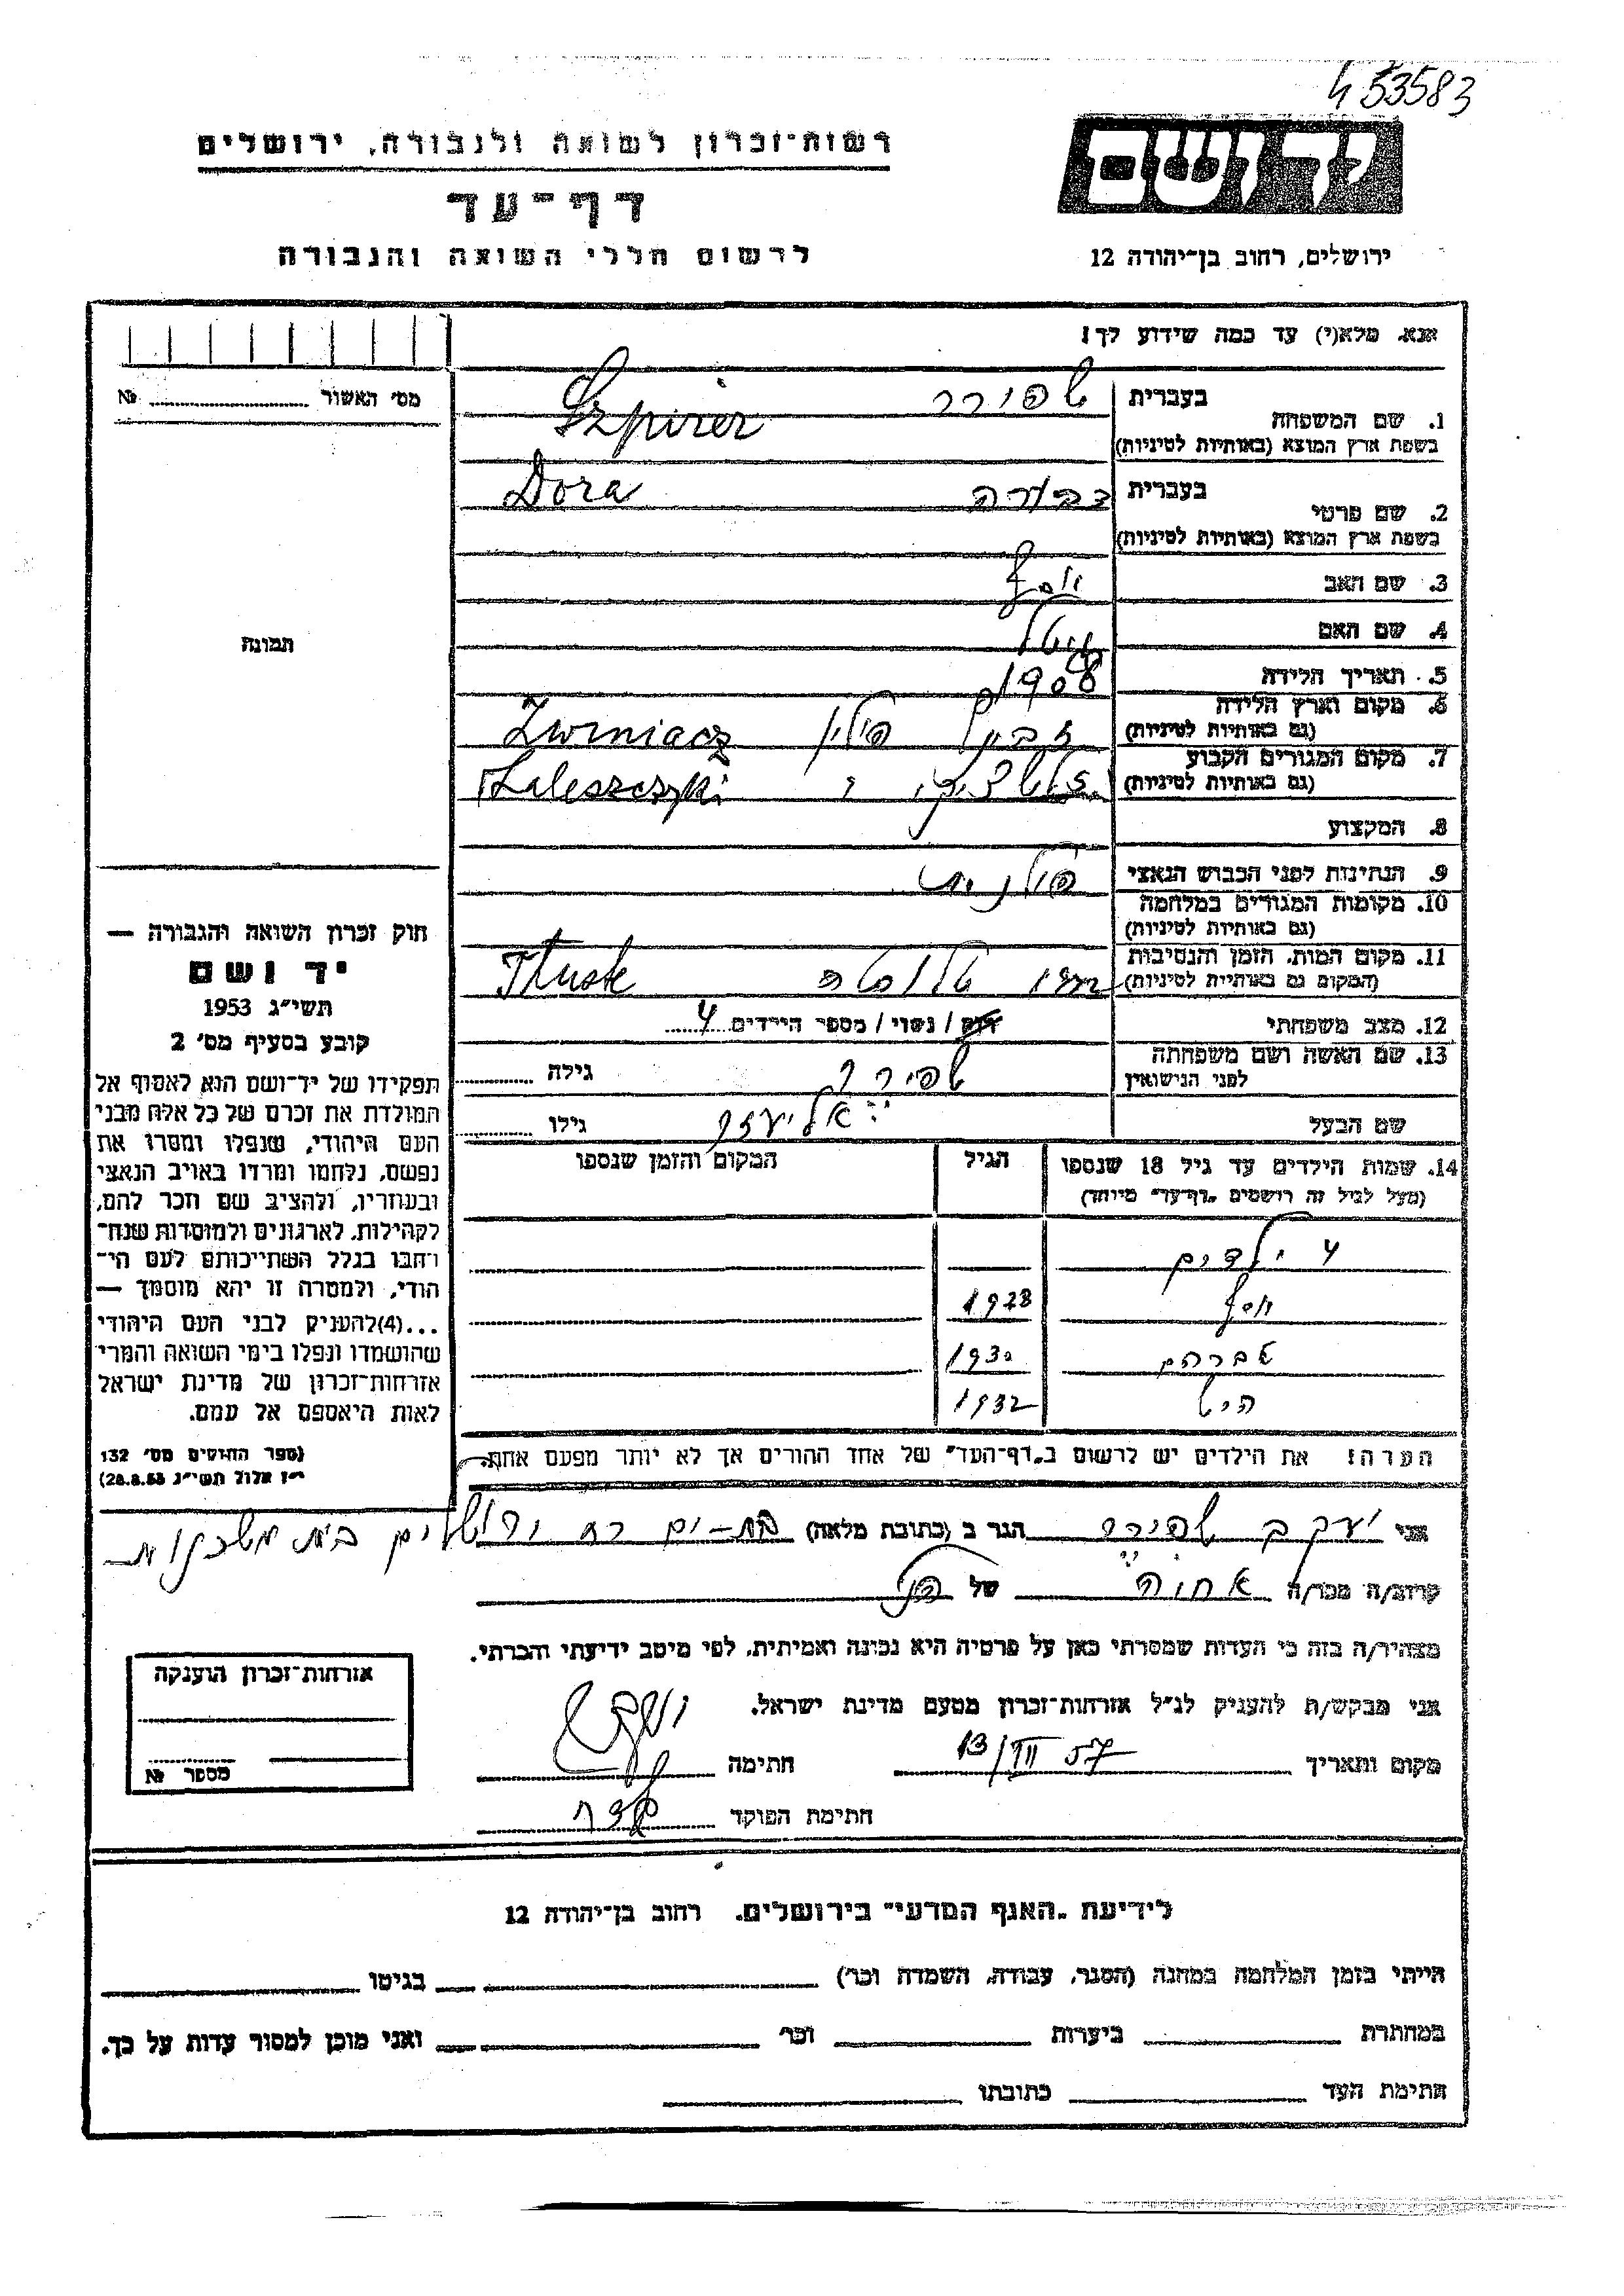 453583
יד ושם
רשות-זכרון לשואה ולגבורה, ירושלים
דף-עד
לרשום חללי השואה והגבורה
ירושלים, רחוב בן-יהודה 12
אנא, מלא(י) עד כמה שידוע לך!
מס' האשור № 
בעברית שפירר
1. שם המשפחה
בשפת ארץ המוצא (באותיות לטיניות) Szpirer
בעברית דבורה
2. שם פרטי
בשפת ארץ המוצא (באותיות לטיניות) Dora
3. שם האב יוסף
4. שם האם
5. תאריך הלידה 1908
6. מקום וארץ הלידה
(גם באותיות לטיניות) פולין Zwiniacz
7. מקום המגורים הקבוע
(גם באותיות לטיניות) Zaleszczyki
8. המקצוע
9. הנתינות לפני הכבוש הנאצי פולנית
10. מקומות המגורים במלחמה
(גם באותיות לטיניות)
11. מקום המות, הזמן והנסיבות
(המקום גם באותיות לטיניות) Tłuste
12. מצב משפחתי רווק / נשוי / מספר הילדים 4
13. שם האשה ושם משפחתה
לפני הנישואין שפירר גילה
שם הבעל אליעזר גילו
14. שמות הילדים עד גיל 18 שנספו הגיל המקום והזמן שנספו
(מעל לגיל זה רושמים "דף-עד" מיוחד)
4 ילדים
יוסף 1928
אברהם 1930
1932
הערה! את הילדים יש לרשום ב"דף-העד" של אחד ההורים אך לא יותר מפעם אחת.
תמונה
חוק זכרון השואה והגבורה —
יד ושם
תשי"ג 1953
קובע בסעיף מס' 2
תפקידו של יד-ושם הוא לאסוף אל
המולדת את זכרם של כל אלה מבני
העם היהודי, שנפלו ומסרו את
נפשם, נלחמו ומרדו באויב הנאצי
ובעוזריו, ולהציב שם וזכר להם,
לקהילות, לארגונים ולמוסדות שנח-
רבו בגלל השתייכותם לעם הי-
הודי, ולמטרה זו יהא מוסמך —
...(4)להעניק לבני העם היהודי
שהושמדו ונפלו בימי השואה והמרי
אזרחות-זכרון של מדינת ישראל
לאות היאספם אל עמם.
(ספר החוקים מס' 132
י"ז אלול תשי"ג 28.8.53)
אני יעקב שפירר הגר ב (כתובת מלאה) בת-ים רח ירושלים
קרוב/ה מכר/ה של
מצהיר/ה בזה כי העדות שמסרתי כאן על פרטיה היא נכונה ואמיתית, לפי מיטב ידיעתי והכרתי.
אני מבקש/ת להעניק לנ"ל אזרחות-זכרון מטעם מדינת ישראל.
מקום ותאריך 13/III 57 חתימה
חתימת הפוקד
אזרחות-זכרון הוענקה
מספר №
לידיעת "האגף המדעי" בירושלים, רחוב בן-יהודה 12
הייתי בזמן המלחמה במחנה (הסגר, עבודה, השמדה וכו') בגיטו
במחתרת ביערות וכו' ואני מוכן למסור עדות על כך.
חתימת העד כתובתו